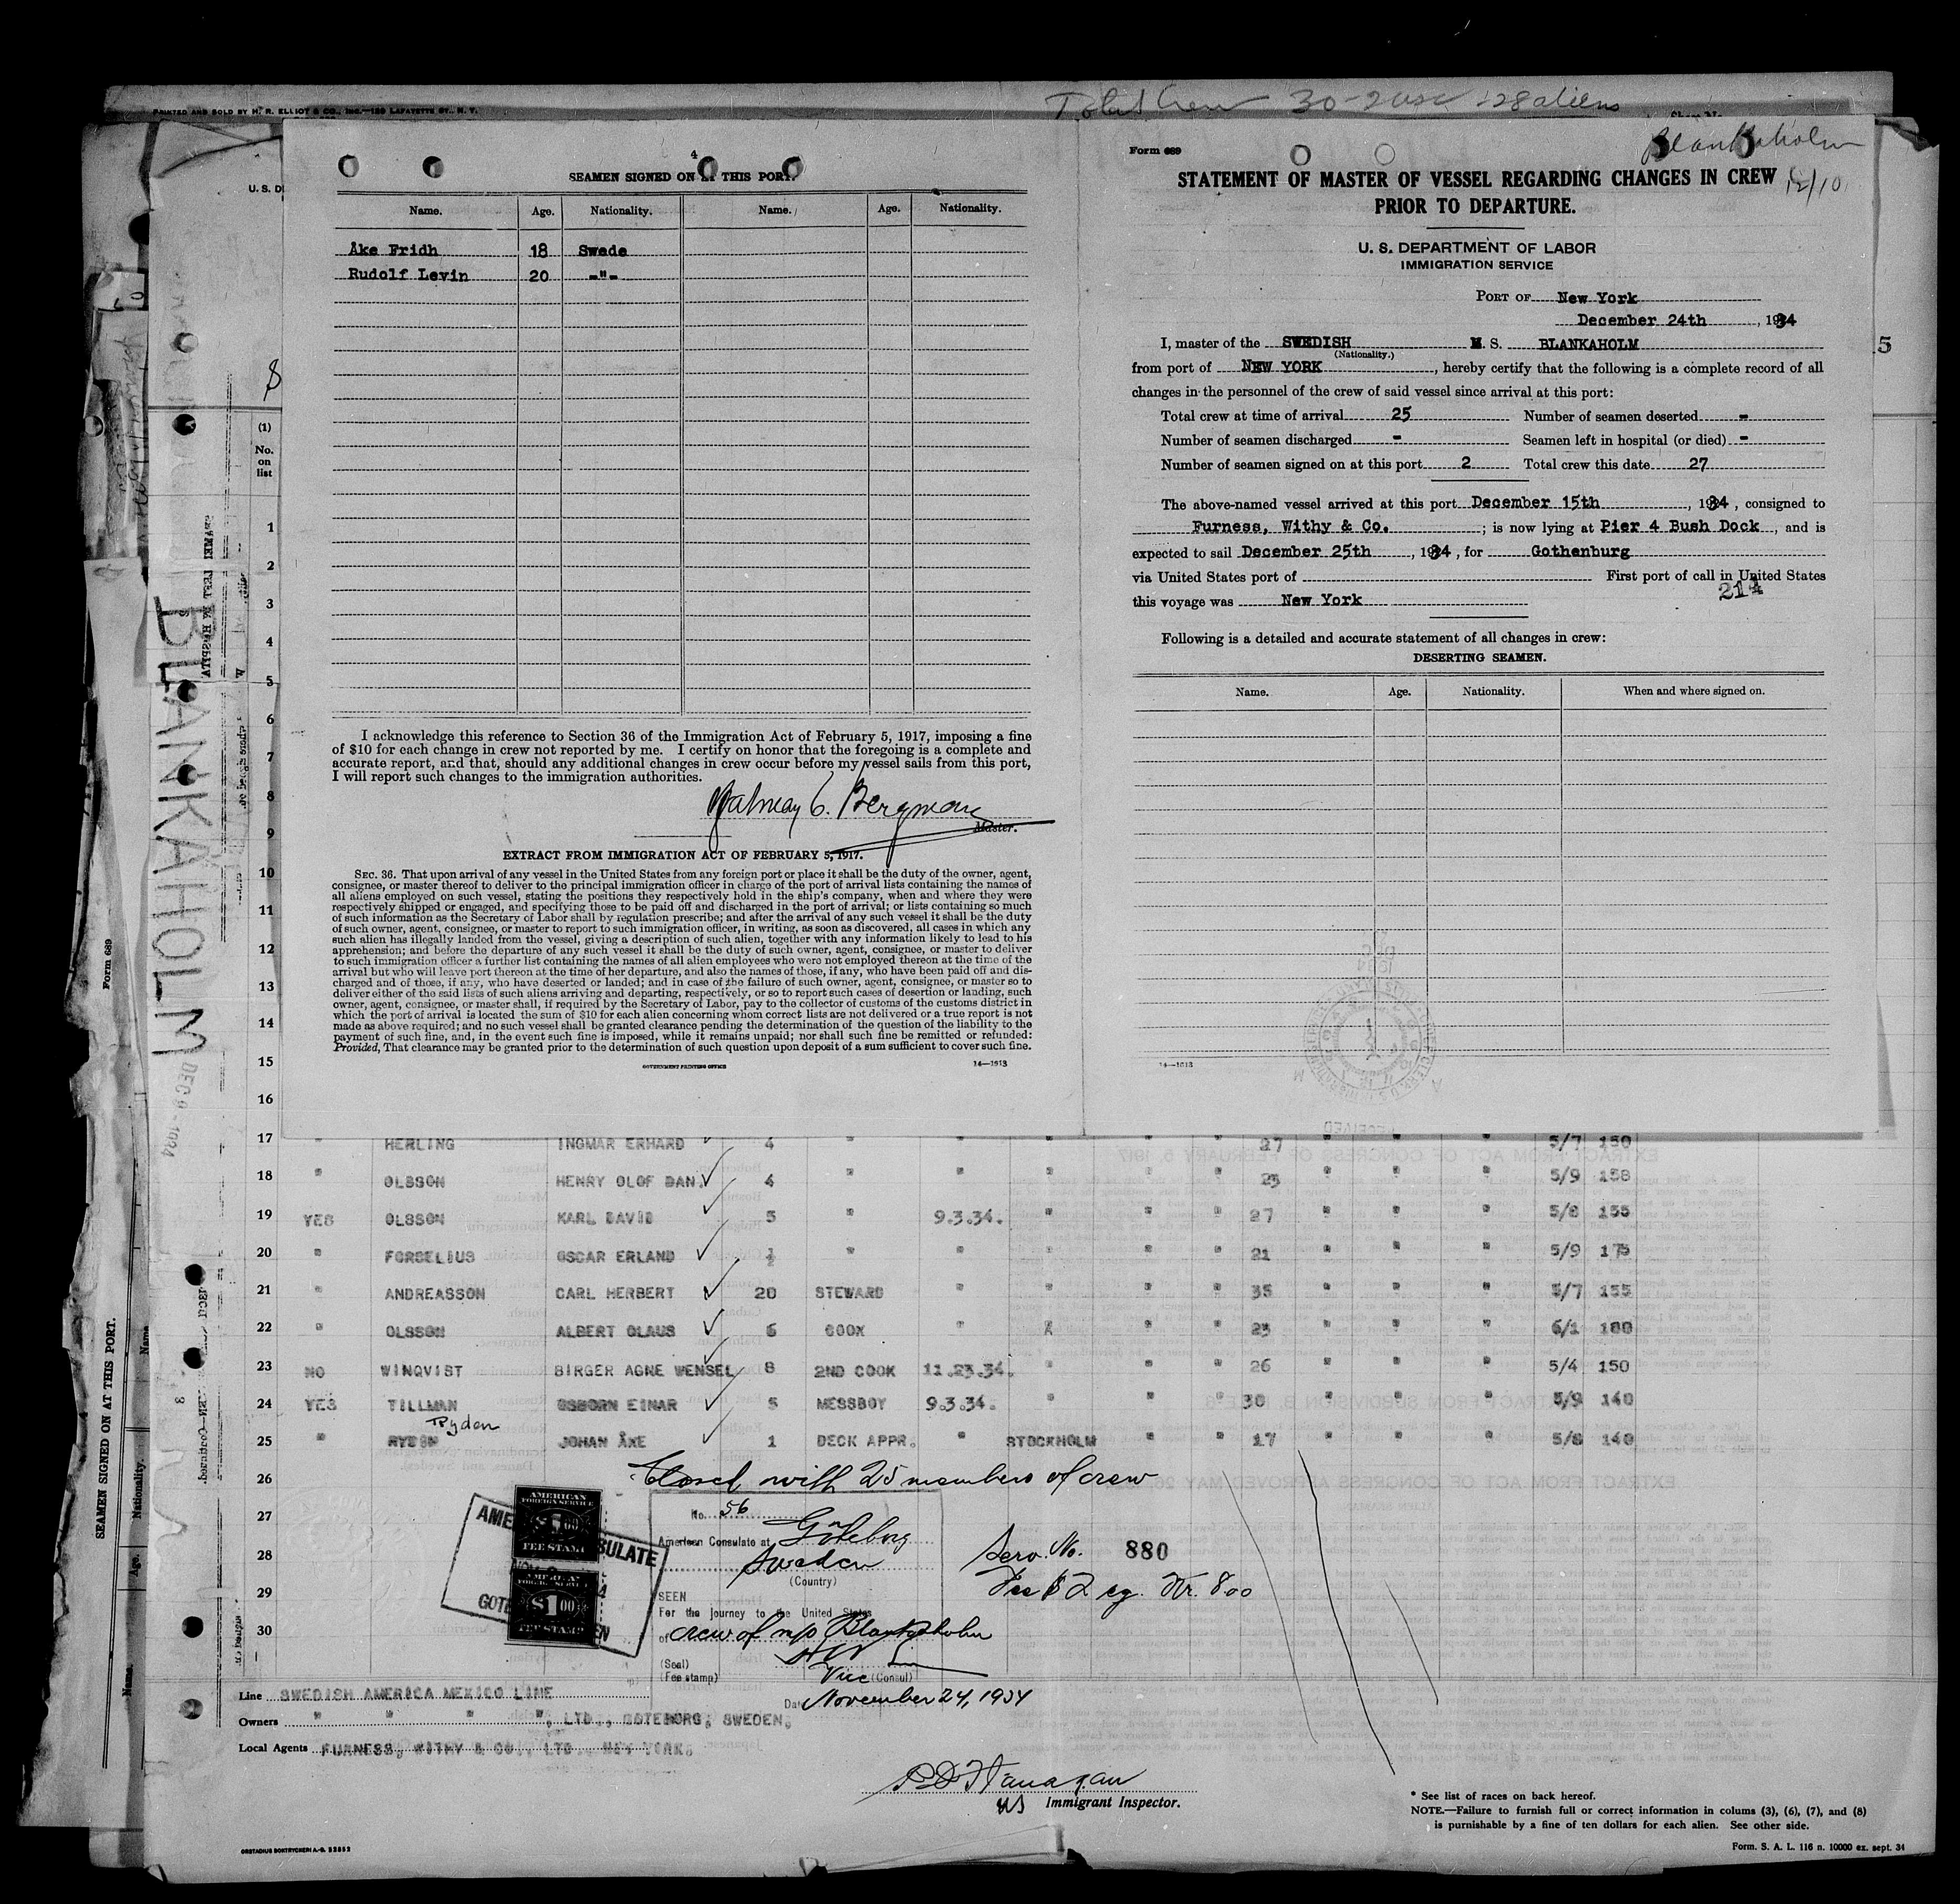 PRINTED AND SOLD BY H. R. ELLIOT & CO., INC.—129 LAFAYETTE ST., N. Y.
Total Crew 30-2usc -28 aliens
U. S. D
4
SEAMEN SIGNED ON AT THIS PORT.
Name. Age. Nationality. Name. Age. Nationality.
Åke Fridh 18 Swede
Rudolf Levin 20 -"-
I acknowledge this reference to Section 36 of the Immigration Act of February 5, 1917, imposing a fine
of $10 for each change in crew not reported by me. I certify on honor that the foregoing is a complete and
accurate report, and that, should any additional changes in crew occur before my vessel sails from this port,
I will report such changes to the immigration authorities.
Bergman
Master.
EXTRACT FROM IMMIGRATION ACT OF FEBRUARY 5, 1917.
SEC. 36. That upon arrival of any vessel in the United States from any foreign port or place it shall be the duty of the owner, agent,
consignee, or master thereof to deliver to the principal immigration officer in charge of the port of arrival lists containing the names of
all aliens employed on such vessel, stating the positions they respectively hold in the ship's company, when and where they were
respectively shipped or engaged, and specifying those to be paid off and discharged in the port of arrival; or lists containing so much
of such information as the Secretary of Labor shall by regulation prescribe; and after the arrival of any such vessel it shall be the duty
of such owner, agent, consignee, or master to report to such immigration officer, in writing, as soon as discovered, all cases in which any
such alien has illegally landed from the vessel, giving a description of such alien, together with any information likely to lead to his
apprehension; and before the departure of any such vessel it shall be the duty of such owner, agent, consignee, or master to deliver
to such immigration officer a further list containing the names of all alien employees who were not employed thereon at the time of the
arrival but who will leave port thereon at the time of her departure, and also the names of those, if any, who have been paid off and dis-
charged and of those, if any, who have deserted or landed; and in case of the failure of such owner, agent, consignee, or master so to
deliver either of the said lists of such aliens arriving and departing, respectively, or so to report such cases of desertion or landing, such
owner, agent, consignee, or master shall, if required by the Secretary of Labor, pay to the collector of customs of the customs district in
which the port of arrival is located the sum of $10 for each alien concerning whom correct lists are not delivered or a true report is not
made as above required; and no such vessel shall be granted clearance pending the determination of the question of the liability to the
payment of such fine, and, in the event such fine is imposed, while it remains unpaid; nor shall such fine be remitted or refunded:
Provided, That clearance may be granted prior to the determination of such question upon deposit of a sum sufficient to cover such fine.
GOVERNMENT PRINTING OFFICE 14—1913
Form 689
Blankaholm
12/10
STATEMENT OF MASTER OF VESSEL REGARDING CHANGES IN CREW
PRIOR TO DEPARTURE.
U. S. DEPARTMENT OF LABOR
IMMIGRATION SERVICE
PORT OF New York
December 24th, 1934
I, master of the SWEDISH M. S. BLANKAHOLM
(Nationality.)
from port of NEW YORK, hereby certify that the following is a complete record of all
changes in the personnel of the crew of said vessel since arrival at this port:
Total crew at time of arrival 25 Number of seamen deserted -
Number of seamen discharged - Seamen left in hospital (or died) -
Number of seamen signed on at this port 2 Total crew this date 27
The above-named vessel arrived at this port December 15th, 1934, consigned to
Furness, Withy & Co.; is now lying at Pier 4 Bush Dock, and is
expected to sail December 25th, 1934, for Gothenburg
via United States port of First port of call in United States
this voyage was New York 214
Following is a detailed and accurate statement of all changes in crew:
DESERTING SEAMEN.
Name. Age. Nationality. When and where signed on.
14—1913
5
BLANKAHOLM
DEC 9 - 1934
Form 689
SEAMEN SIGNED ON AT THIS PORT.
Name. Age. Nationality. Name
(1)
No.
on
list
1
2
3
4
5
6
7
8
9
10
11
12
13
14
15
16
17 " HERLING INGMAR ERHARD 4 " " " " " 27 " " " 5/7 150
18 " OLSSON HENRY OLOF DAN. 4 " " " " " 25 " " " 5/9 158
19 YES OLSSON KARL DAVID 5 " 9.3.34. " " " 27 " " " 5/8 155
20 " FORSELIUS OSCAR ERLAND ½ " " " " " 21 " " " 5/9 175
21 " ANDREASSON CARL HERBERT 20 STEWARD " " " " 35 " " " 5/7 155
22 " OLSSON ALBERT OLAUS 6 COOK " " " " 25 " " " 6/1 180
23 NO WINQVIST BIRGER AGNE WENSEL 8 2ND COOK 11.23.34. " " " 26 " " " 5/4 150
24 YES TILLMAN OSBORN EINAR 5 MESSBOY 9.3.34. " " " 30 " " " 5/9 140
Ryden
25 " RYDEN JOHAN ÅKE 1 DECK APPR. " STOCKHOLM " " 17 " " " 5/8 140
26 Closed with 25 members of crew
27
28
29
30
No. 56
American Consulate at Göteborg
Sweden
(Country)
SEEN
For the journey to the United States
of crew of m/s Blankaholm
(Seal)
(Fee stamp) Vice (Consul)
Date November 24, 1934
AMERICAN
FOREIGN SERVICE
$1.00
FEE STAMP
$1.00
FEE STAMP
Serv. No. 880
Fee $2 eq. Kr. 8.00
Line SWEDISH AMERICA MEXICO LINE
Owners " " " ", LTD., GOTEBORG, SWEDEN,
Local Agents FURNESS, WITHY & CO., LTD. NEW YORK,
P D Flanagan
US Immigrant Inspector.
* See list of races on back hereof.
NOTE.—Failure to furnish full or correct information in colums (3), (6), (7), and (8)
is punishable by a fine of ten dollars for each alien. See other side.
Form. S. A. L. 116 n. 10000 ex. sept. 34